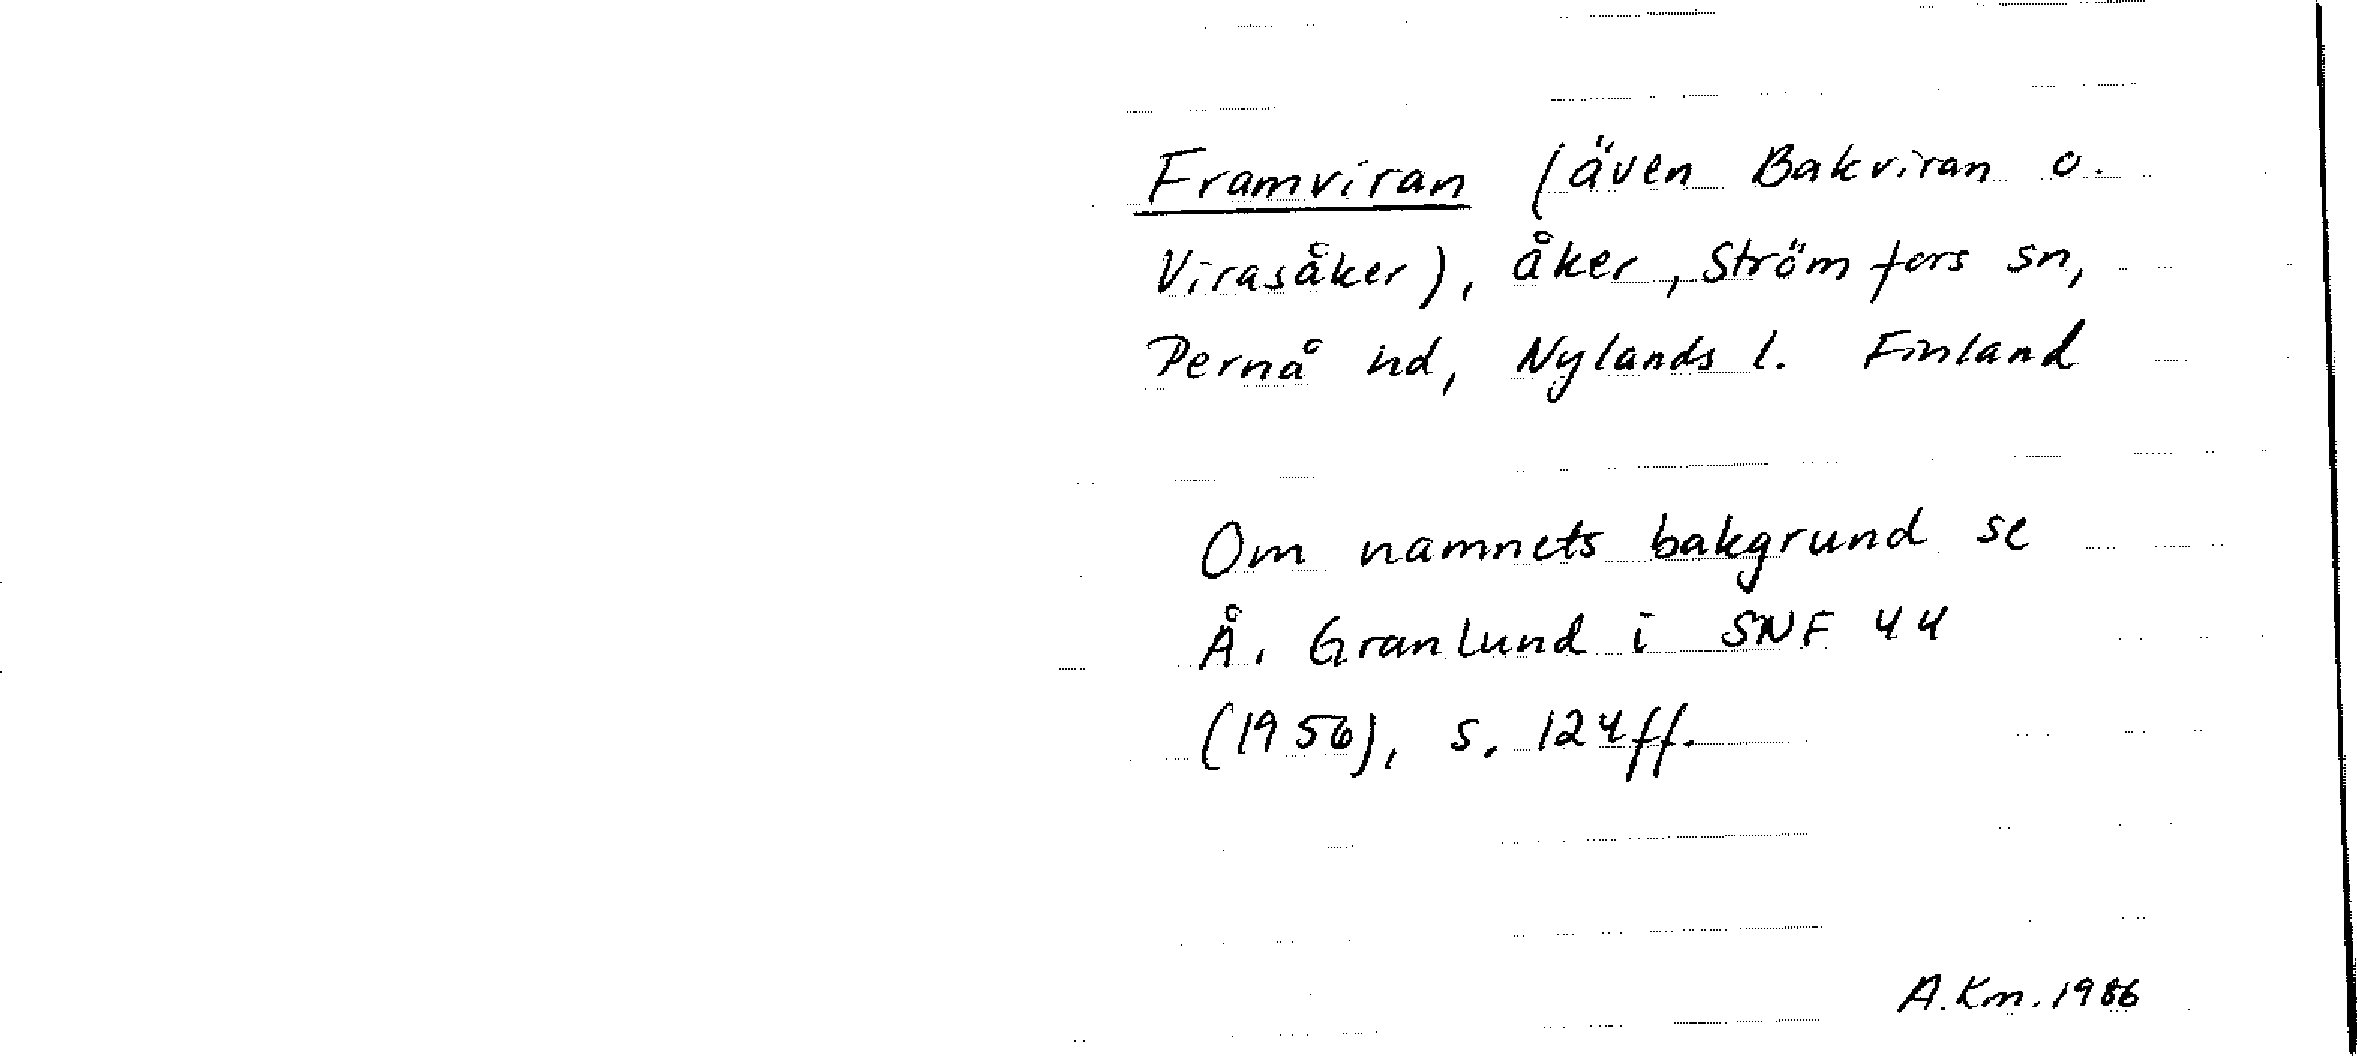 Framviran (även Bakviran o.
Virasåker), åker, Strömfors sn,
Pernå hd, Nylands l. Finland
Om namnets bakgrund se
Å. Granlund i SNF 44
(1956), s. 124ff.
A.Km. 1986